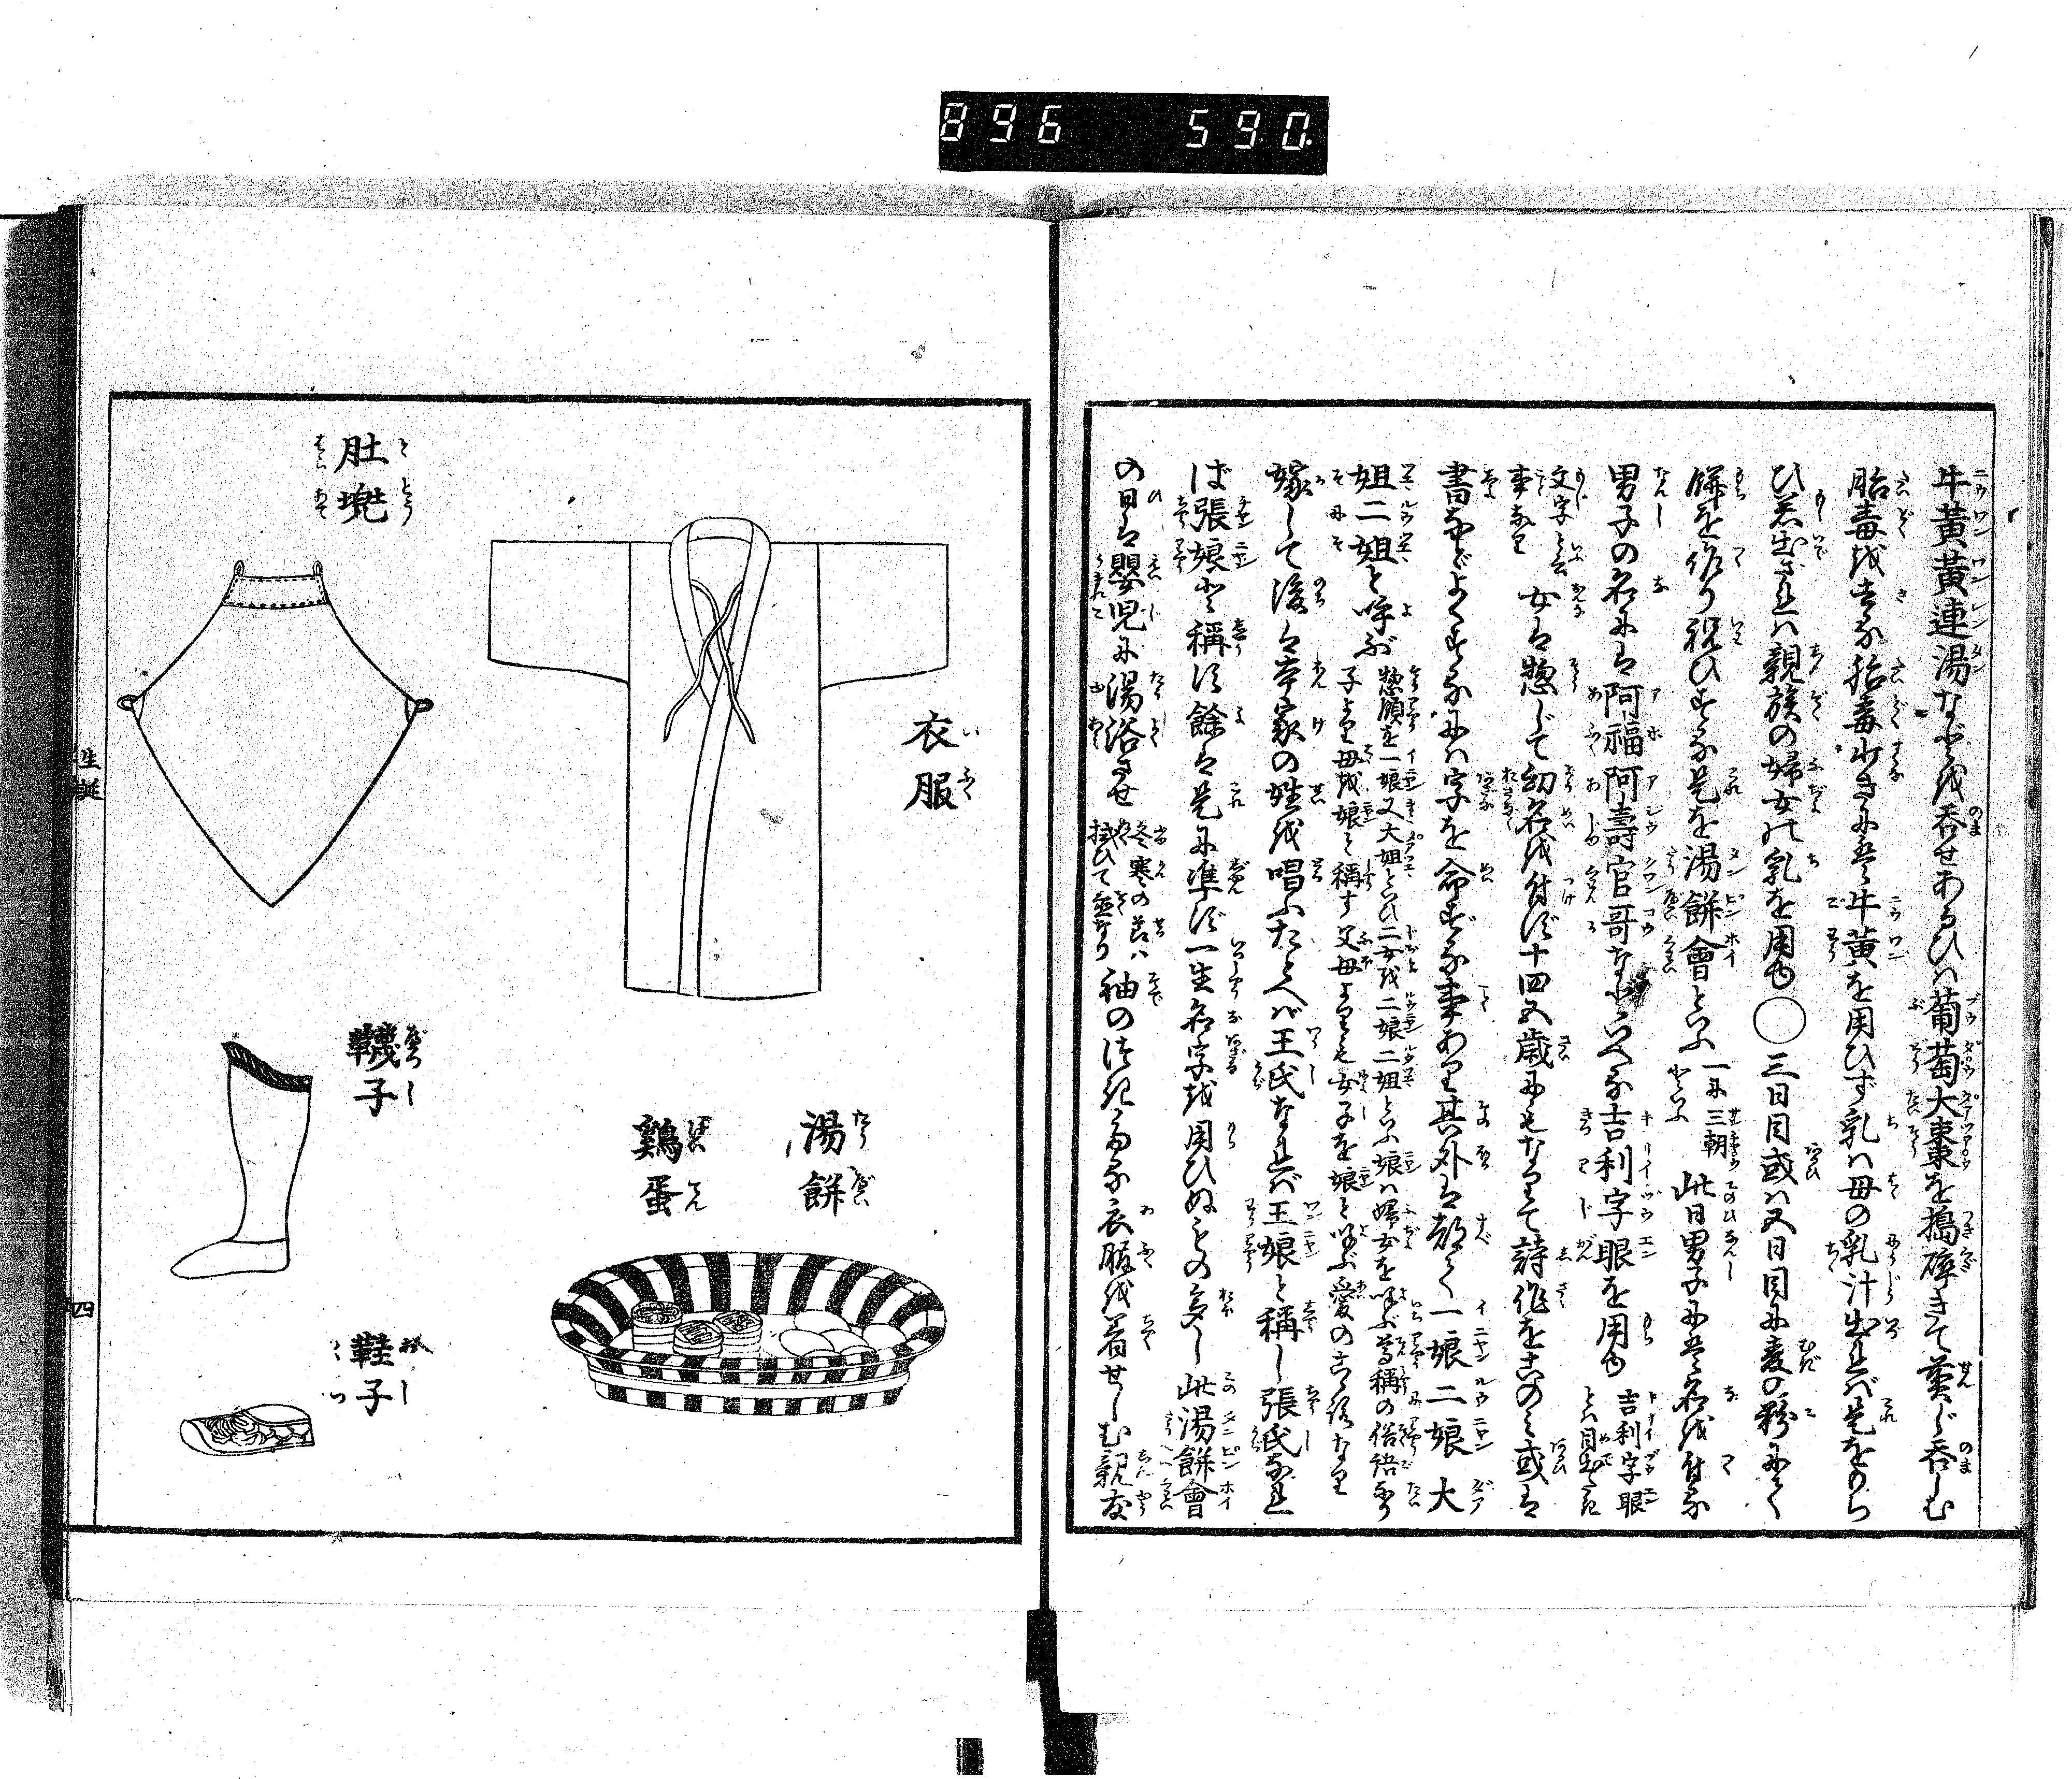 896 590.
牛黄黄連湯などを呑せあるひは葡萄大棗を搗碎きて煎じ呑しむ
胎毒を去る胎毒少きには牛黄を用ひず乳は母の乳汁出れば是をのら
ひ若出ざれは親族の婦女の乳を用ゆ○三日目或は五日目に麦の粉にて
餅を作り祝ひする是を湯餅會といふ
一に三朝
といふ
此日男子には名を付る
男子の名には阿福阿壽官哥などいへる吉利字眼を用ゆ
吉利字眼
とは目出たき
文字と云
事なり
女は惣じて幼名を付ず十四五歳にもなりて詩作をこのみ或は
書などよくするには字を命ずる事あり其外は都て一娘二娘大
姐二姐と呼ぶ
惣領を一娘又大姐といひ二女を二娘二姐といふ娘は婦女を呼ぶ尊稱の俗語
子より母を娘と稱す父母よりも女子を娘と呼ぶ愛のこころなり
嫁して後は本家の姓を唱ふたとへば王氏なれば王娘と稱し張氏なれ
ば張娘と稱す餘は是に準ず一生名字を用ひぬもの多し此湯餅會
の日は嬰児に湯浴させ
冬寒の節は
拭ひて
袖の
衣服を着せしむ親友
衣服
肚兜
湯餅
鶏蛋
韈子
鞋子
生誕
四